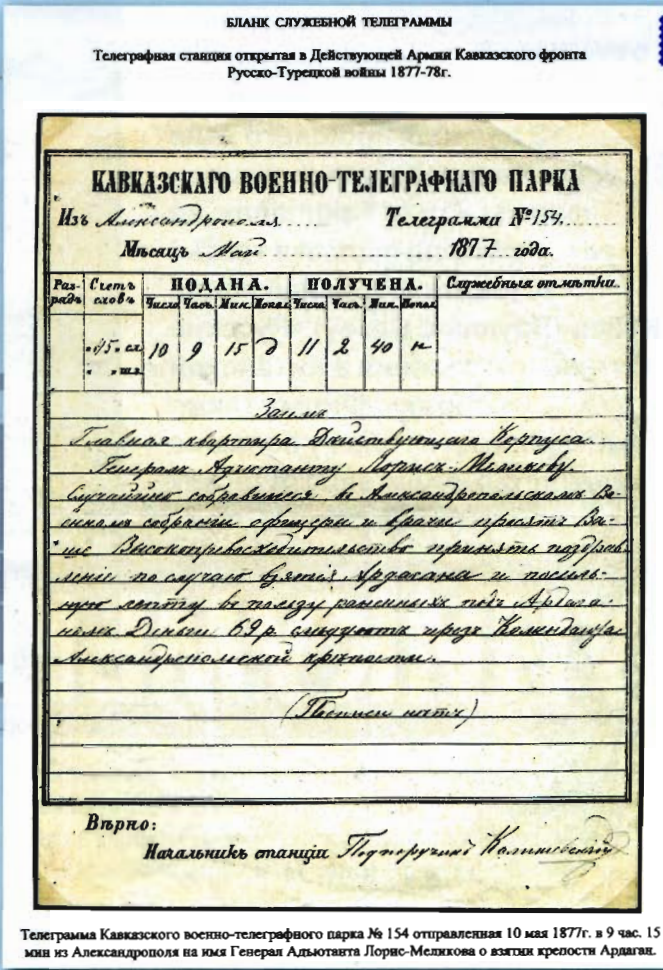 БЛАНК СЛУЖЕБНОЙ ТЕЛЕГРАММЫ
Телеграфная станция открытая в Действующей Армии Кавказского фронта
Русско-Турецкой войны 1877-78г.
КАВКАЗСКАГО ВОЕННО-ТЕЛЕГРАФНАГО ПАРКА
Изъ Александрополя Телеграмма № 154.
Мѣсяцъ Май 1877 года.
Раз-рядъ Счетъ словъ ПОДАНА. ПОЛУЧЕНА. Служебныя отмѣтки.
Число Часъ. Мин. Попол. Число. Часъ. Мин. Попол.
45 сл. 10 9 15 д 11 2 40 н
шл.
Главная квартира Действующаго Корпуса
Генералъ Адъютанту Лорисъ-Меликову.
Случайно собравшиеся в Александропольскомъ Во-
енномъ собрании офицеры и врачи просятъ Ва-
ше Высокопревосходительство принять поздрав
ление по случаю взятия Ардагана и посиль-
ную лепту в пользу раненныхъ подъ Ардага-
номъ Деньги 69 р. следуютъ чрезъ Коменданта
Александропольской крепости.
Вѣрно:
Начальникъ станціи Подпоручикъ
Телеграмма Кавказского военно-телеграфного парка № 154 отправленная 10 мая 1877г. в 9 час. 15
мин из Александрополя на имя Генерал Адъютанта Лорис-Меликова о взятии крепости Ардаган.